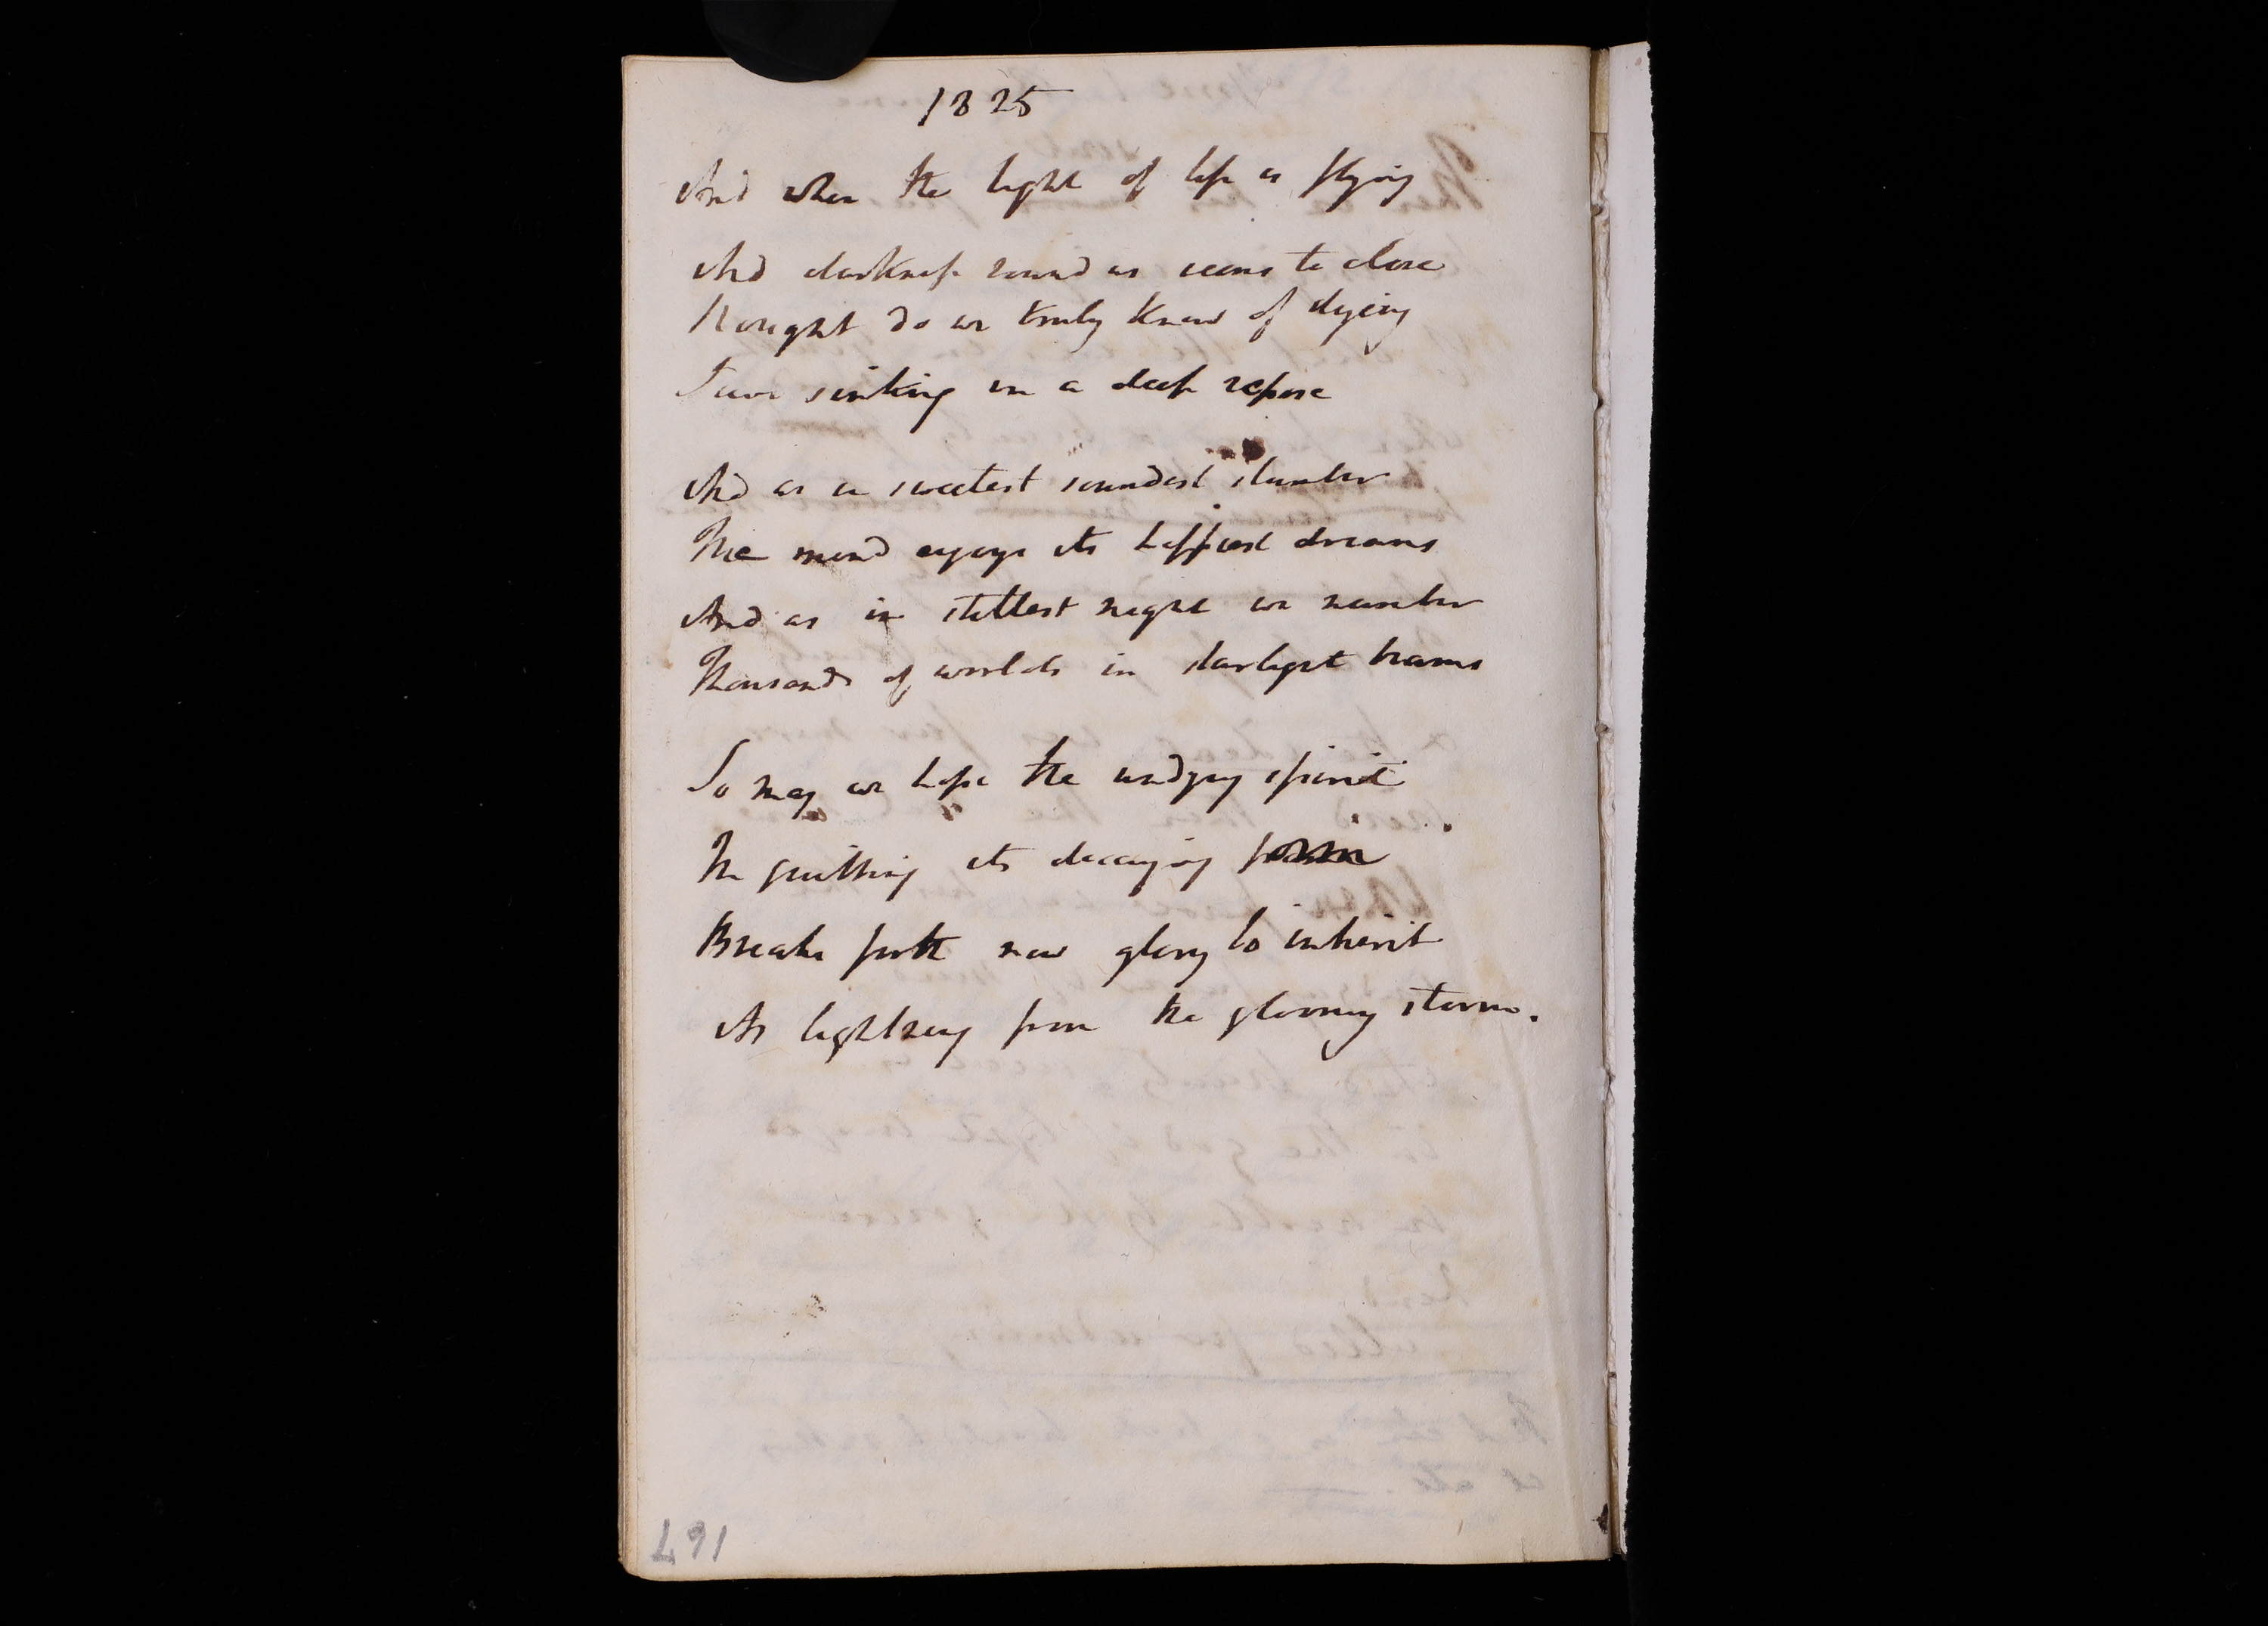 1825
And when the light of life is flying
And darkness round us seems to close
Nought do we truly know of dying
Save sinking in a deep repose
And as in sweetest soundest slumber
The mind enjoys its happiest dreams
And as in stillest night we number
Thousands of worlds in starlight beams
So may we hope the undying spirit
In quitting its decaying form
Breaks forth new glory to inherit
As lightning from the gloomy storm.
167